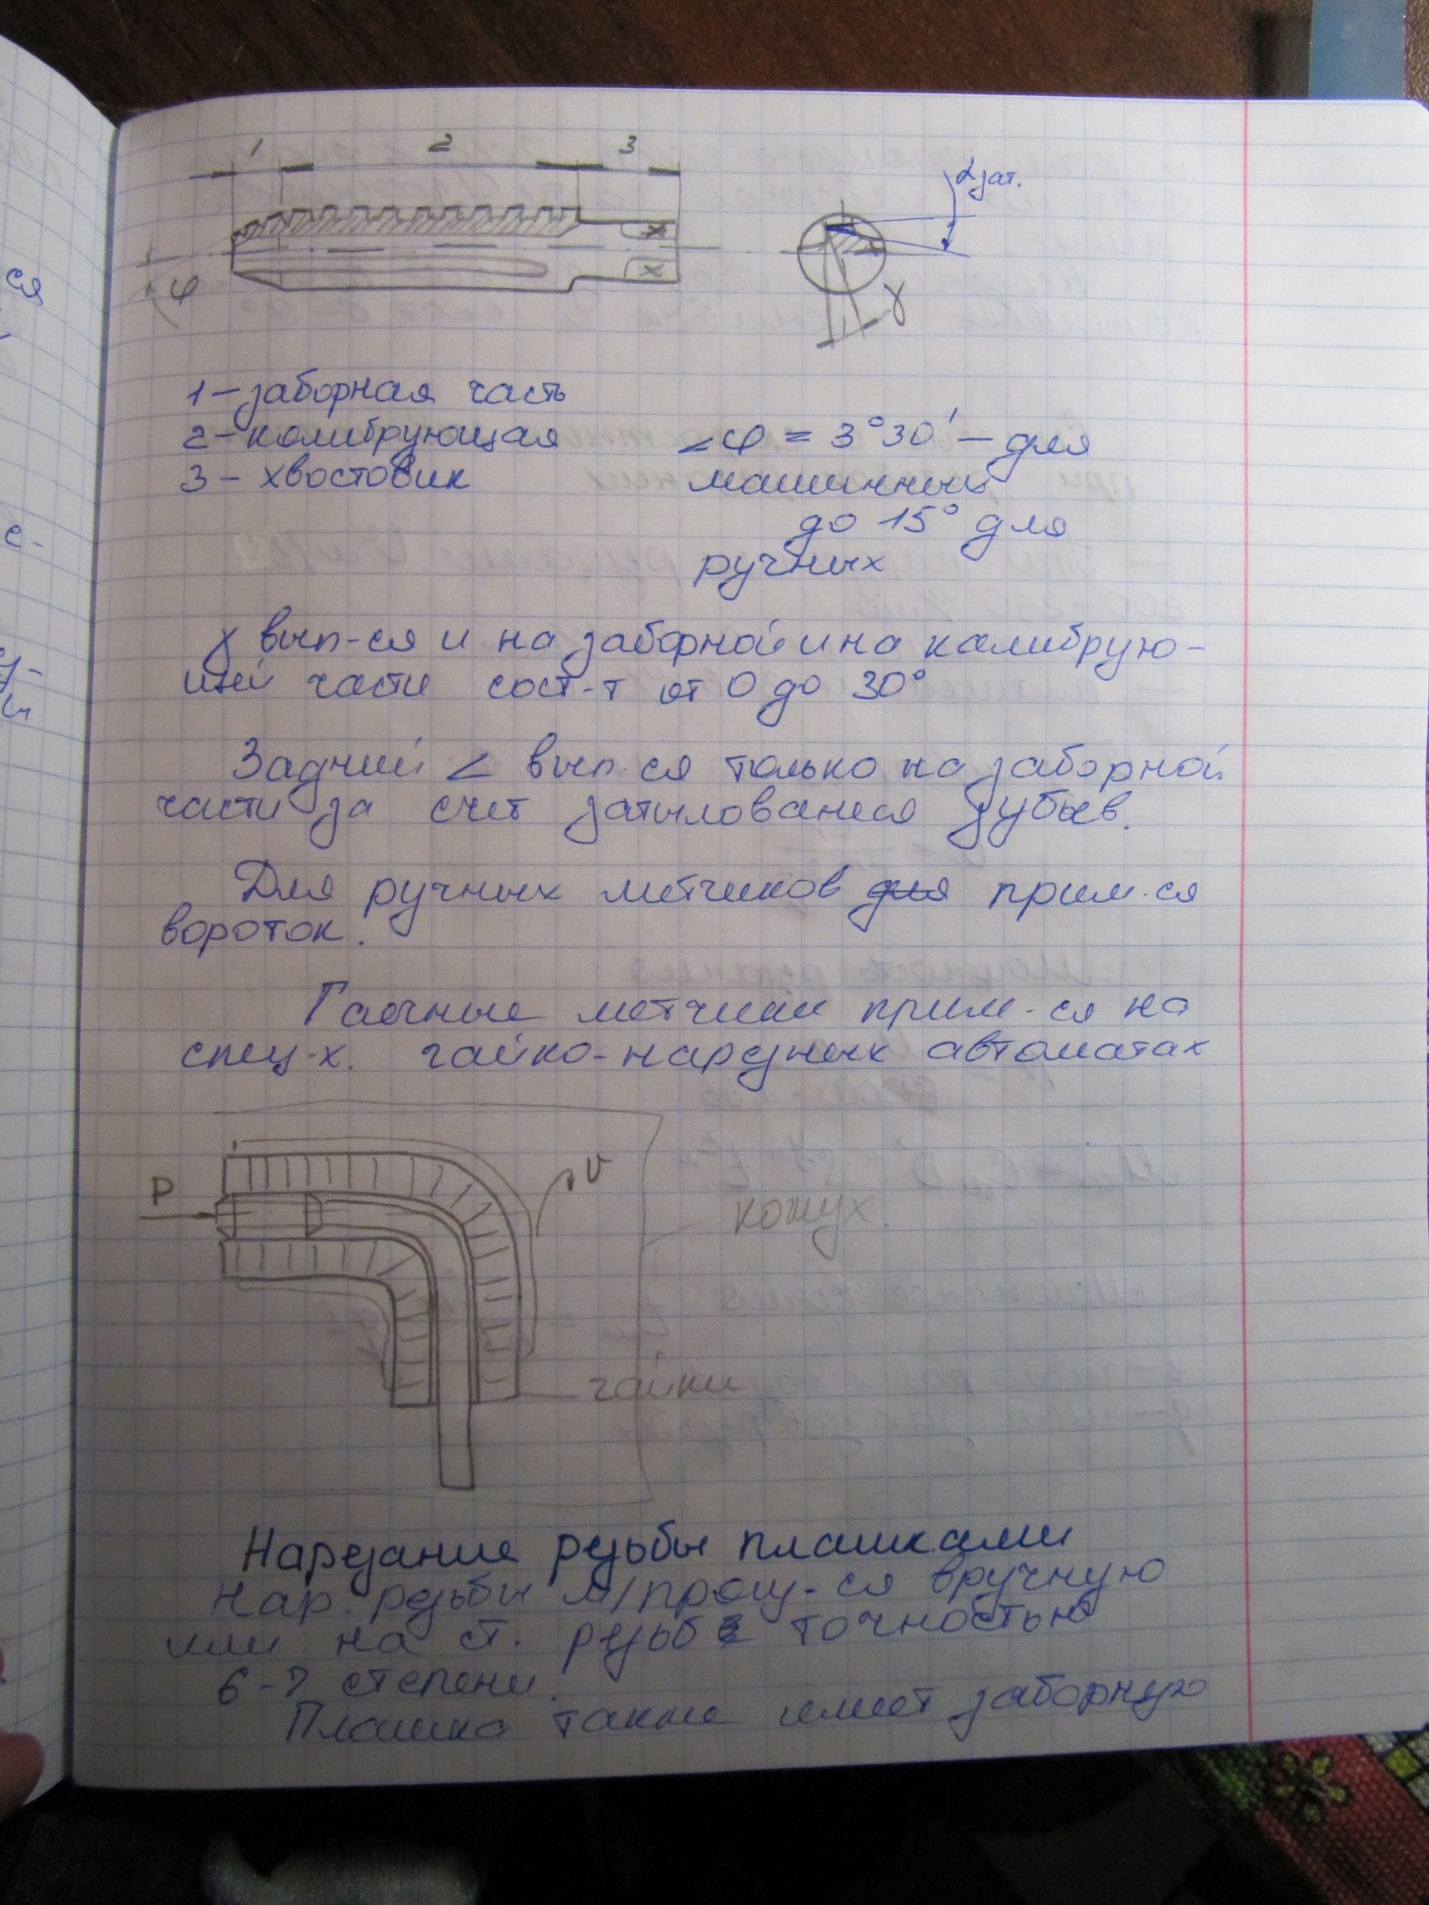 1 2 3
αзат.
φ
γ
1 – заборная часть
2 – калибрующая
3 – хвостовик
∠φ = 3°30' – для
машинных
до 15° для
ручных
γ вып-ся и на заборной и на калибрую-
щей части сост-т от 0 до 30°
Задний ∠ вып-ся только на заборной
части за счет затылования зубьев.
Для ручных метчиков для прим-ся
вороток.
Гаечные метчики прим-ся на
спец-х. гайко-нарезных автоматах
P
v
кожух.
гайки
Нарезание резьбы плашками
Нар. резьбы м/произ-ся вручную
или на ст. резьб точностью
6-7 степени.
Плашка также имеет заборную